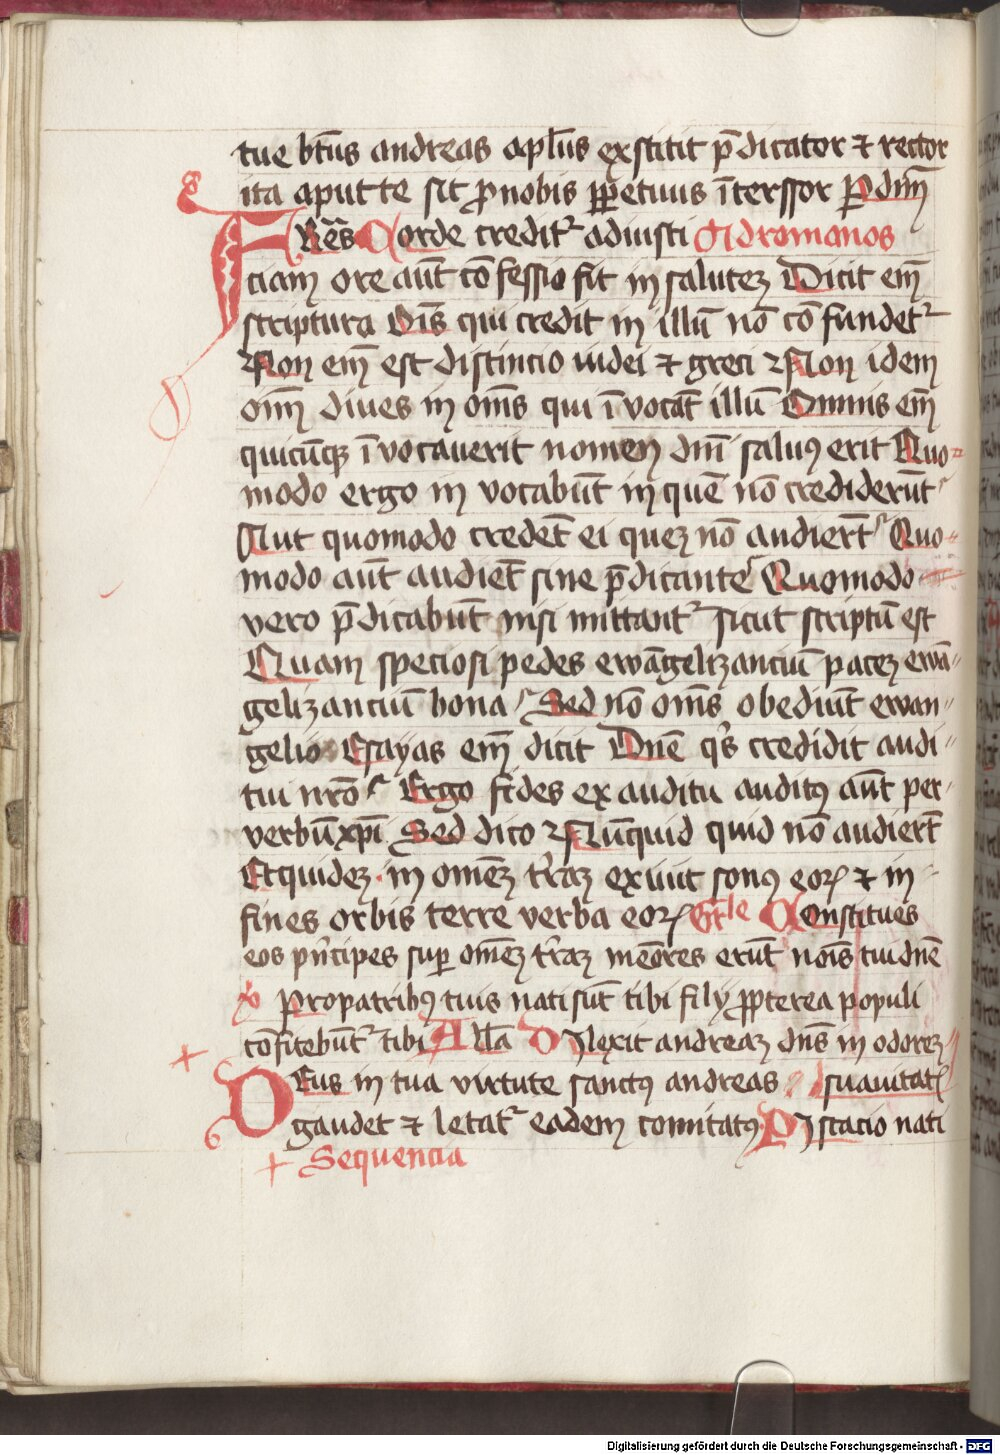 tue bt̄us andreas apl̄us exstitit p̄dicator ⁊ rector
ita aput te sit ꝓ nobis ꝑpetuus īterssor P dn̄m
FRēs Corde credit᷑ ad iusti Ad romanos
ciam ore aūt cōfessio fit in salutez Dicit em̄
scriptura Oīs qui credit in illū nō cōfundet᷑
Non em̄ est distinctio iudei ⁊ greci Non idem
om̄ diues in om̄s qui īvocāt illū Omnis em̄
quicūqꝫ īvocauerit nomen dn̄i saluꝰ erit Quo
modo ergo in vocabūt in quē nō crediderūt
Aut quomodo credēt ei quez nō audiert̄ Quo
modo aūt audiēt sine p̄dicante Quomodo
vero p̄dicabūt nisi mittant᷑ sicut scriptū est
Quam speciosi pedes ewāgelizanciū pacez ewā
gelizanciū bona Sed nō om̄s obediūt ewan
gelio Esayas em̄ dicit Dn̄e qͥs credidit audi
tui nr̄o Ergo fides ex auditu auditꝰ aūt per
verbū xp̄i Sed dico Nūquid quid nō audiert̄
Et quidez in omēz tr̄az exiuit sonꝰ eoꝝ ⁊ in
fines orbis terre verba eoꝝ Gr̄le Constitues
eos pͥncipes suꝑ omēz tr̄az memōres erūt noīs tui dn̄e
v̄ Pro patribꝰ tuis nati sūt tibi filij ꝓpterea populi
cōfitebūt᷑ tibi All̄a Dilexit andreaz dn̄s in odorez
DEus in tua virtute sanctꝰ andreas suauitatꝭ
gaudet ⁊ letat᷑ eadem comitatꝰ Disctacio nati
Sequencia
Digitalisierung gefördert durch die Deutsche Forschungsgemeinschaft - DFG